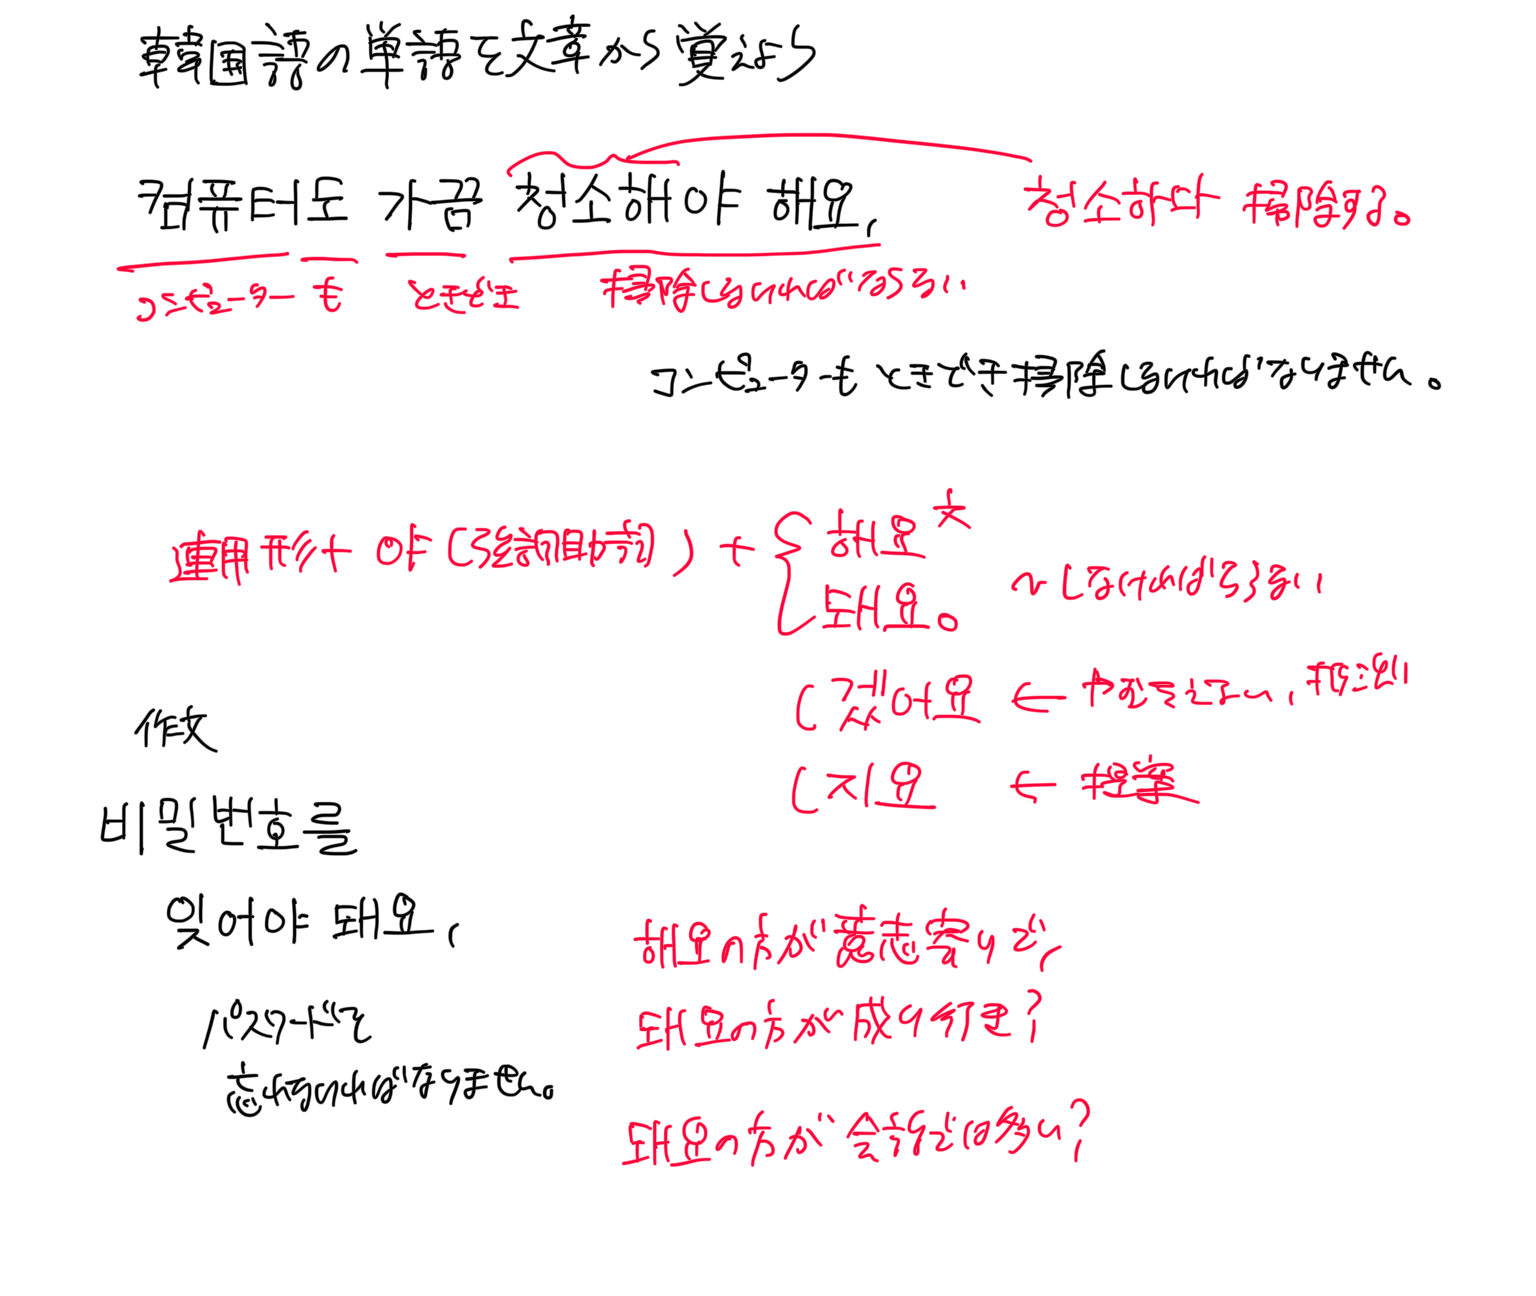 韓国語の単語を文章から覚えよう
컴퓨터도 가끔 청소해야 해요.
청소하다 掃除する。
コンピューター も ときどき 掃除しなければならない
コンピューターもときどき掃除しなければなりません。
連用形+ 야 (強調助詞) + 해요 文
돼요。
〜しなければならない
(겠어요 ← やむをえない,
(지요 ← 提案
作文
비밀번호를
잊어야 돼요.
パスワードを
忘れなければなりません。
해요の方が意志寄りで、
돼요の方が成り行き?
돼요の方が会話では多い?